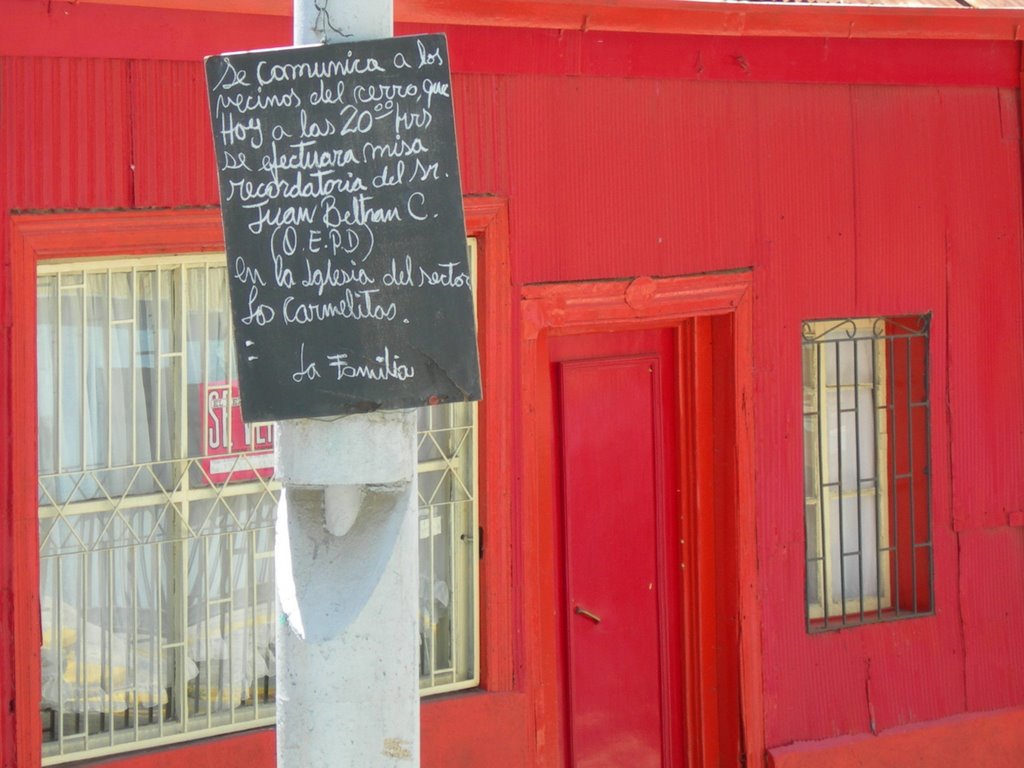 Se comunica a los
vecinos del cerro, que
Hoy a las 20⁰⁰ hrs
se efectuara misa
recordatoria del sr.
Juan Beltran C.
(Q.E.P.D)
en la Iglesia del sector
Los Carmelitas.
La Familia